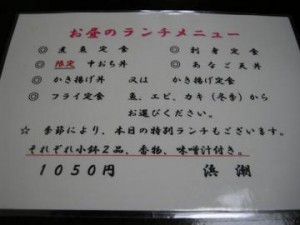 お昼のランチメニュー
◎ 煮魚定食 ◎ 刺身定食
◎ 限定 中おち丼 ◎ あなご天丼
◎ かき揚げ丼 又は かき揚げ定食
◎ フライ定食 魚、エビ、カキ(冬季)から
お選びください。
☆ 季節により、本日の特別ランチもございます。
それぞれ小鉢2品、香物、味噌汁付き。
1050円 浜潮